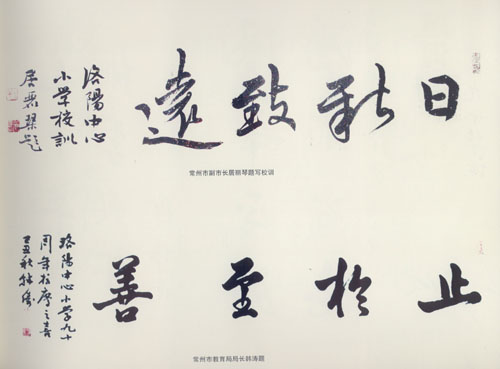 日新致遠
洛陽中心
小学校訓
居麗琴题
常州市副市长居丽琴题写校训
止於至善
洛陽中心小学九十
周年校庆之喜
己丑秋韩涛
常州市教育局局长韩涛题